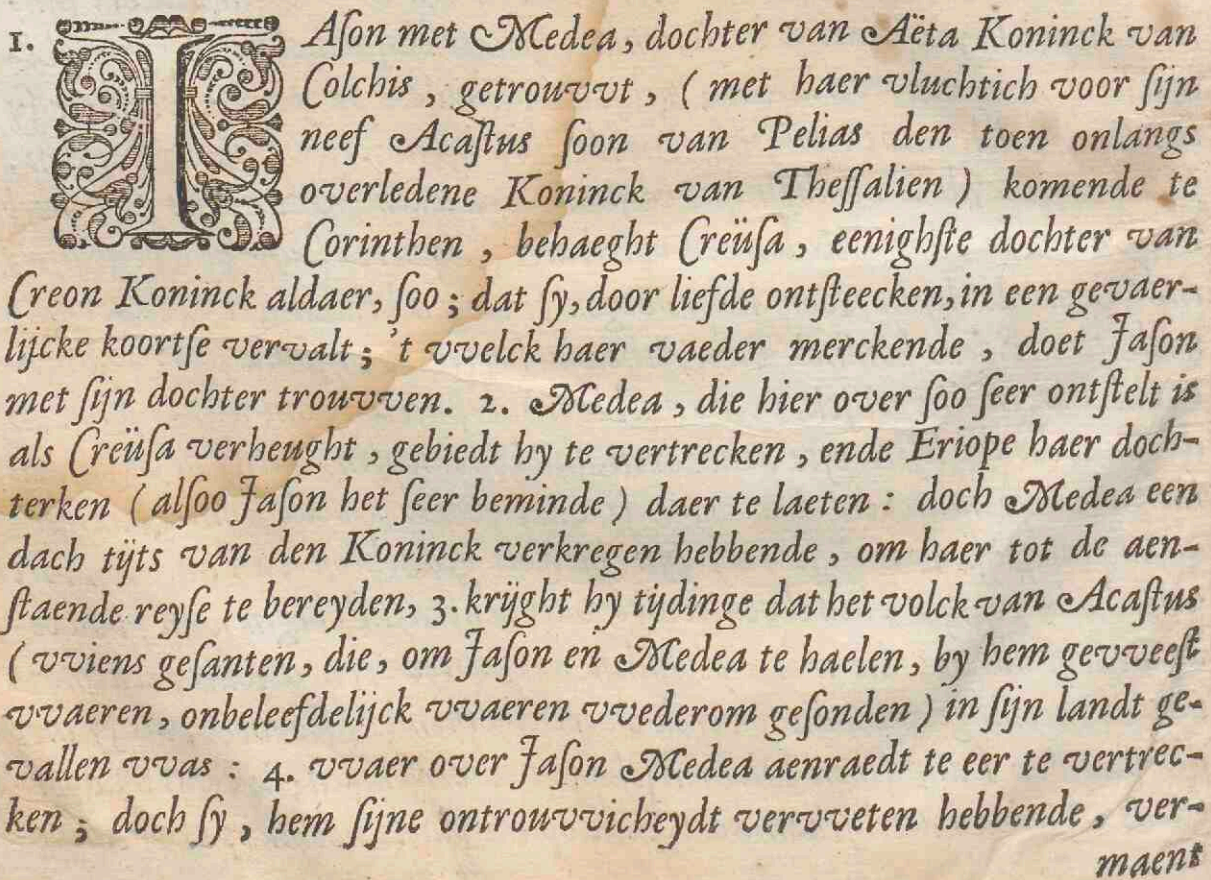 1. IAſon met Medea, dochter van Aëta Koninck van
Colchis, getrouvvt, (met haer vluchtich voor ſijn
neef Acaſtus ſoon van Pelias den toen onlangs
overledene Koninck van Theſſalien) komende te
Corinthen, behaeght Creüſa, eenighſte dochter van
Creon Koninck aldaer, ſoo; dat ſy, door liefde ontſteecken, in een gevaer-
lijcke koortſe vervalt; 't vvelck haer vaeder merckende, doet Jaſon
met ſijn dochter trouvven. 2. Medea, die hier over ſoo ſeer ontſtelt is
als Creüſa verheught, gebiedt hy te vertrecken, ende Eriope haer doch-
terken (alſoo Jaſon het ſeer beminde) daer te laeten: doch Medea een
dach tijts van den Koninck verkregen hebbende, om haer tot de aen-
ſtaende reyſe te bereyden, 3. krijght hy tijdinge dat het volck van Acaſtus
(vviens geſanten, die, om Jaſon en Medea te haelen, by hem gevveeſt
vvaeren, onbeleefdelijck vvaeren vvederom geſonden) in ſijn landt ge-
vallen vvas: 4. vvaer over Jaſon Medea aenraedt te eer te vertrec-
ken; doch ſy, hem ſijne ontrouvvicheydt vervveten hebbende, ver-
maent